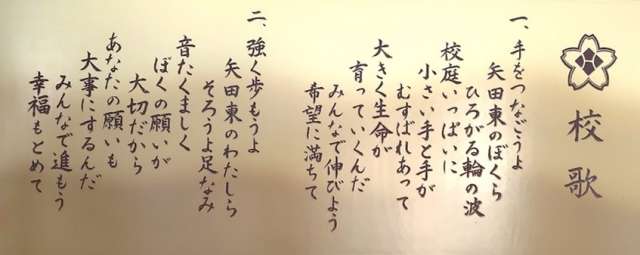 校歌
一、手をつなごうよ
矢田東のぼくら
ひろがる輪の波
校庭いっぱいに
小さい手と手が
むすばれあって
大きく生命が
育っていくんだ
みんなで伸びよう
希望に満ちて
二、強く歩もうよ
矢田東のわたしら
そろうよ足なみ
音たくましく
ぼくの願いが
大切だから
あなたの願いも
大事にするんだ
みんなで進もう
幸福もとめて